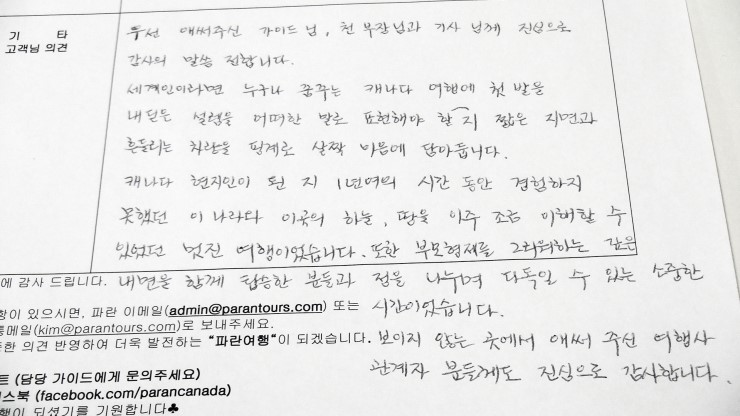 기 타
고객님 의견
우선 애써주신 가이드 님, 천 부장님과 기사 님께 진심으로
감사의 말씀 전합니다.
세계인이라면 누구나 꿈꾸는 캐나다 여행에 첫 발을
내딛은 설렘을 어떠한 말로 표현해야 할지 짧은 지면과
흔들리는 차안을 핑계로 살짝 마음에 담아둡니다.
캐나다 현지인이 된 지 1년여의 시간 동안 경험하지
못했던 이 나라와 이곳의 하늘, 땅을 아주 조금 이해할 수
있었던 멋진 여행이었습니다. 또한 부모형제를 그리워하는 같은
에 감사 드립니다. 내면을 함께 탑승한 분들과 정을 나누며 다독일 수 있는 소중한
항이 있으시면, 파란 이메일(admin@parantours.com) 또는 시간이었습니다.
통메일(kim@parantours.com)로 보내주세요.
한 의견 반영하여 더욱 발전하는 "파란여행"이 되겠습니다. 보이지 않는 곳에서 애써 주신 여행사
관계자 분들께도 진심으로 감사합니다.
트 (담당 가이드에게 문의주세요)
스북 (facebook.com/parancanada)
행이 되셨기를 기원합니다♣